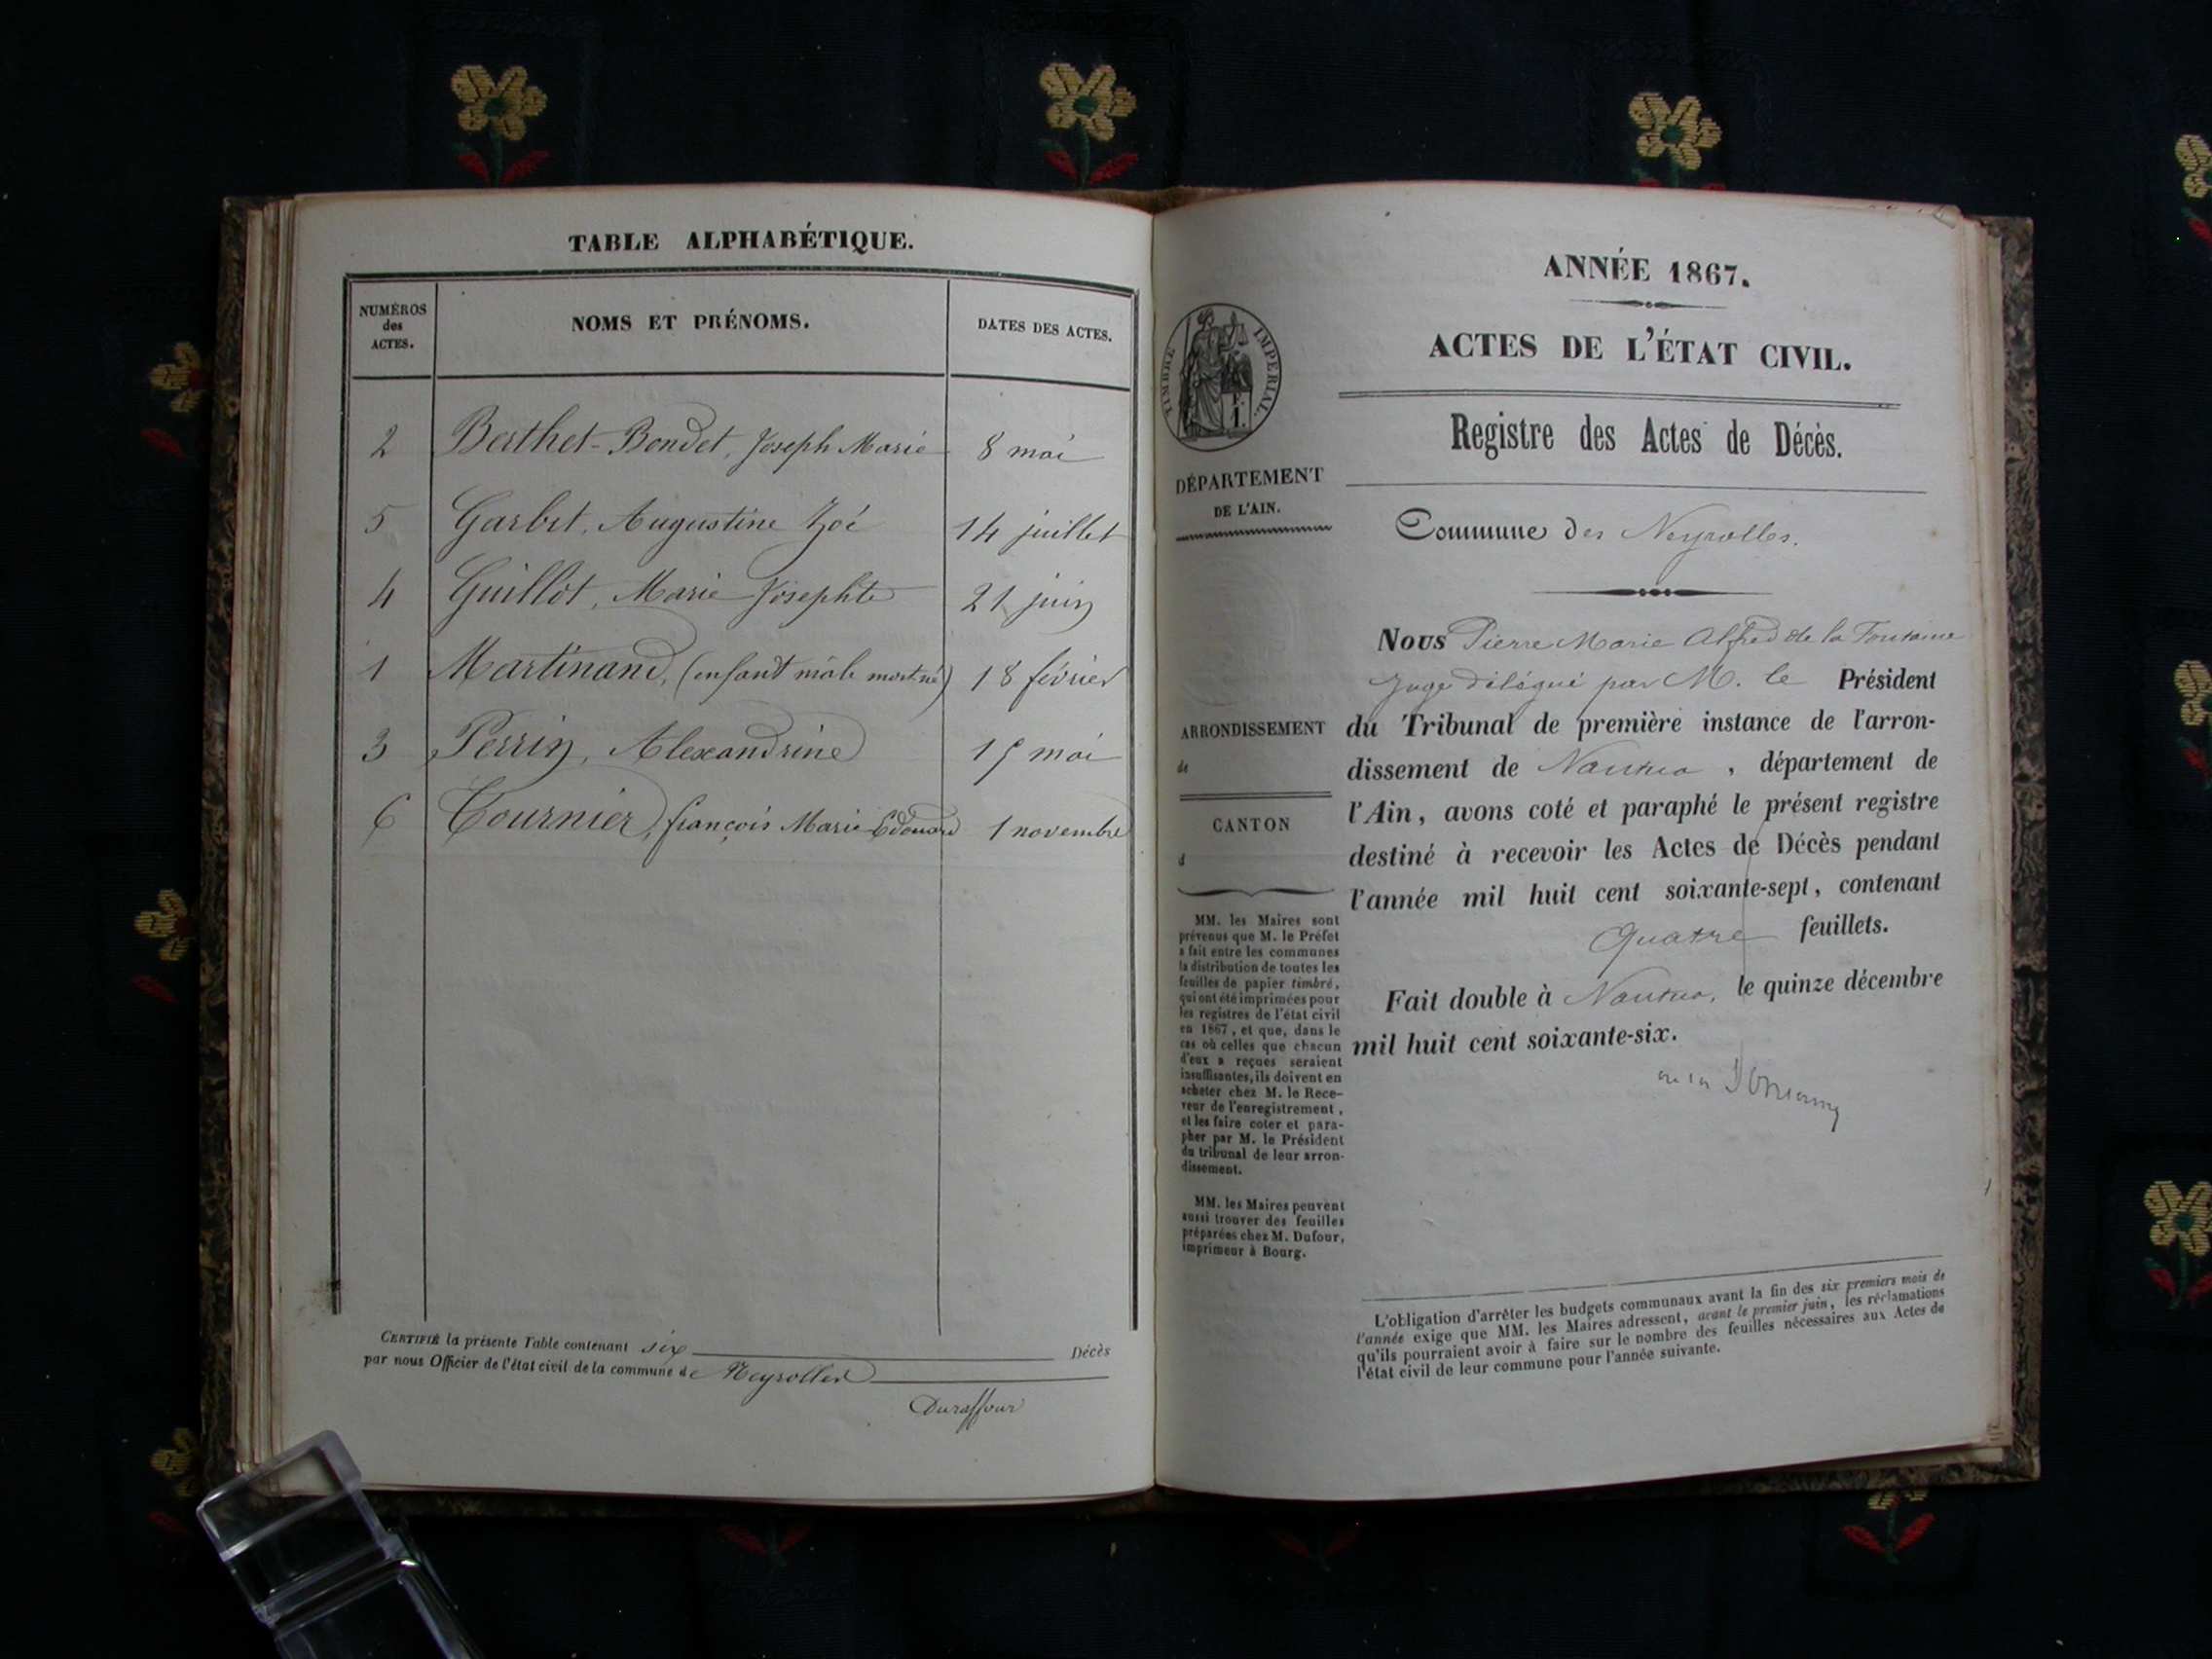 TABLE ALPHABÉTIQUE.
NUMÉROS
des
ACTES.
NOMS ET PRÉNOMS.
DATES DES ACTES.
2 Berthet-Bondet, Joseph Marie 8 mai
5 Garbit, Augustine Zoé 14 juillet
4 Guillot, Marie Josephte 21 juin
1 Martinand, (enfant mâle mort-né) 18 février
3 Perrin, Alexandrine 15 mai
6 Tournier, françois Marie Edouard 1 novembre
CERTIFIÉ la présente Table contenant six Décès
par nous Officier de l'état civil de la commune de Neyrolles
Duraffour
ANNÉE 1867.
ACTES DE L'ÉTAT CIVIL.
Registre des Actes de Décès.
TIMBRE IMPÉRIAL.
1.
DÉPARTEMENT
DE L'AIN.
Commune des Neyrolles.
Nous Pierre Marie Alfred de la Fontaine
Juge délégué par M. le Président
du Tribunal de première instance de l'arron-
dissement de Nantua, département de
l'Ain, avons coté et paraphé le présent registre
destiné à recevoir les Actes de Décès pendant
l'année mil huit cent soixante-sept, contenant
Quatre feuillets.
Fait double à Nantua, le quinze décembre
mil huit cent soixante-six.
ARRONDISSEMENT
de
CANTON
d
MM. les Maires sont
prévenus que M. le Préfet
a fait entre les communes
la distribution de toutes les
feuilles de papier timbré,
qui ont été imprimées pour
les registres de l'état civil
en 1867, et que, dans le
cas où celles que chacun
d'eux a reçues seraient
insuffisantes, ils doivent en
acheter chez M. le Rece-
veur de l'enregistrement,
et les faire coter et para-
pher par M. le Président
du tribunal de leur arron-
dissement.
MM. les Maires peuvent
aussi trouver des feuilles
préparées chez M. Dufour,
imprimeur à Bourg.
L'obligation d'arrêter les budgets communaux avant la fin des six premiers mois de
l'année exige que MM. les Maires adressent, avant le premier juin, les réclamations
qu'ils pourraient avoir à faire sur le nombre des feuilles nécessaires aux Actes de
l'état civil de leur commune pour l'année suivante.